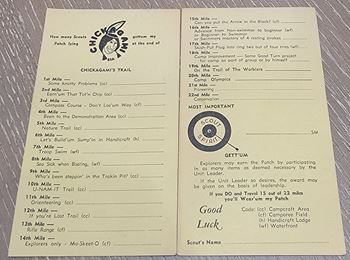 How many Scouts gottum my
Patch lying at the end of
CHICKAGAMI
CHICKAGAMI'S TRAIL
1st Mile —
Some Knotty Problems (cc)
2nd Mile —
Earn'um That Tot'n Chip (cc)
3rd Mile —
Compass Course - Don't Los'um Way (cf)
4th Mile —
Been to the Demonstration Area (cc)
5th Mile —
Nature Trail (cc)
6th Mile —
Let's Build'um Sump'in in Handicraft (h)
7th Mile —
Troop Swim (wf)
8th Mile —
Sea Sick when Boating, (wf)
9th Mile —
Who's been steppin' in the Trakin Pit? (cc)
10th Mile —
U-NAM-IT Trail (cc)
11th Mile —
Orienteering (cc)
12th Mile —
If you're Lost Trail (cc)
13th Mile —
Rifle Range (cf)
14th Mile —
Explorers only - Mo-Skeet-O (cf)
15th Mile —
Can you put the Arrow in the Black? (cf)
16th Mile —
Advance from Non-swimmer to beginner (wf)
or Beginner to Swimmer
or Swimmers mastery of 4 resting strokes
17th Mile —
Skish-Put Plug into ring two out of four tries (wf)
18th Mile —
Camp Improvement — Some Good Turn project
for camp as part of group or by himself
19th Mile —
On the Trail of The Workers
20th Mile —
Camp Olympics
21st Mile —
Pioneering
22nd Mile —
Conservation
MOST IMPORTANT
SCOUT
SPIRIT
S/M
GETT'UM
Explorers may earn the Patch by participating
in as many items as deemed necessary by the
Unit Leader.
If the Unit Leader so desires, the award may
be given on the basis of leadership.
If you DO and Travel 15 out of 22 miles
you'll Wear'um my Patch
Good
Luck
Code: (cc) Campcraft Area
(cf) Camporee Field
(h) Handicraft Lodge
(wf) Waterfront
Scout's Name